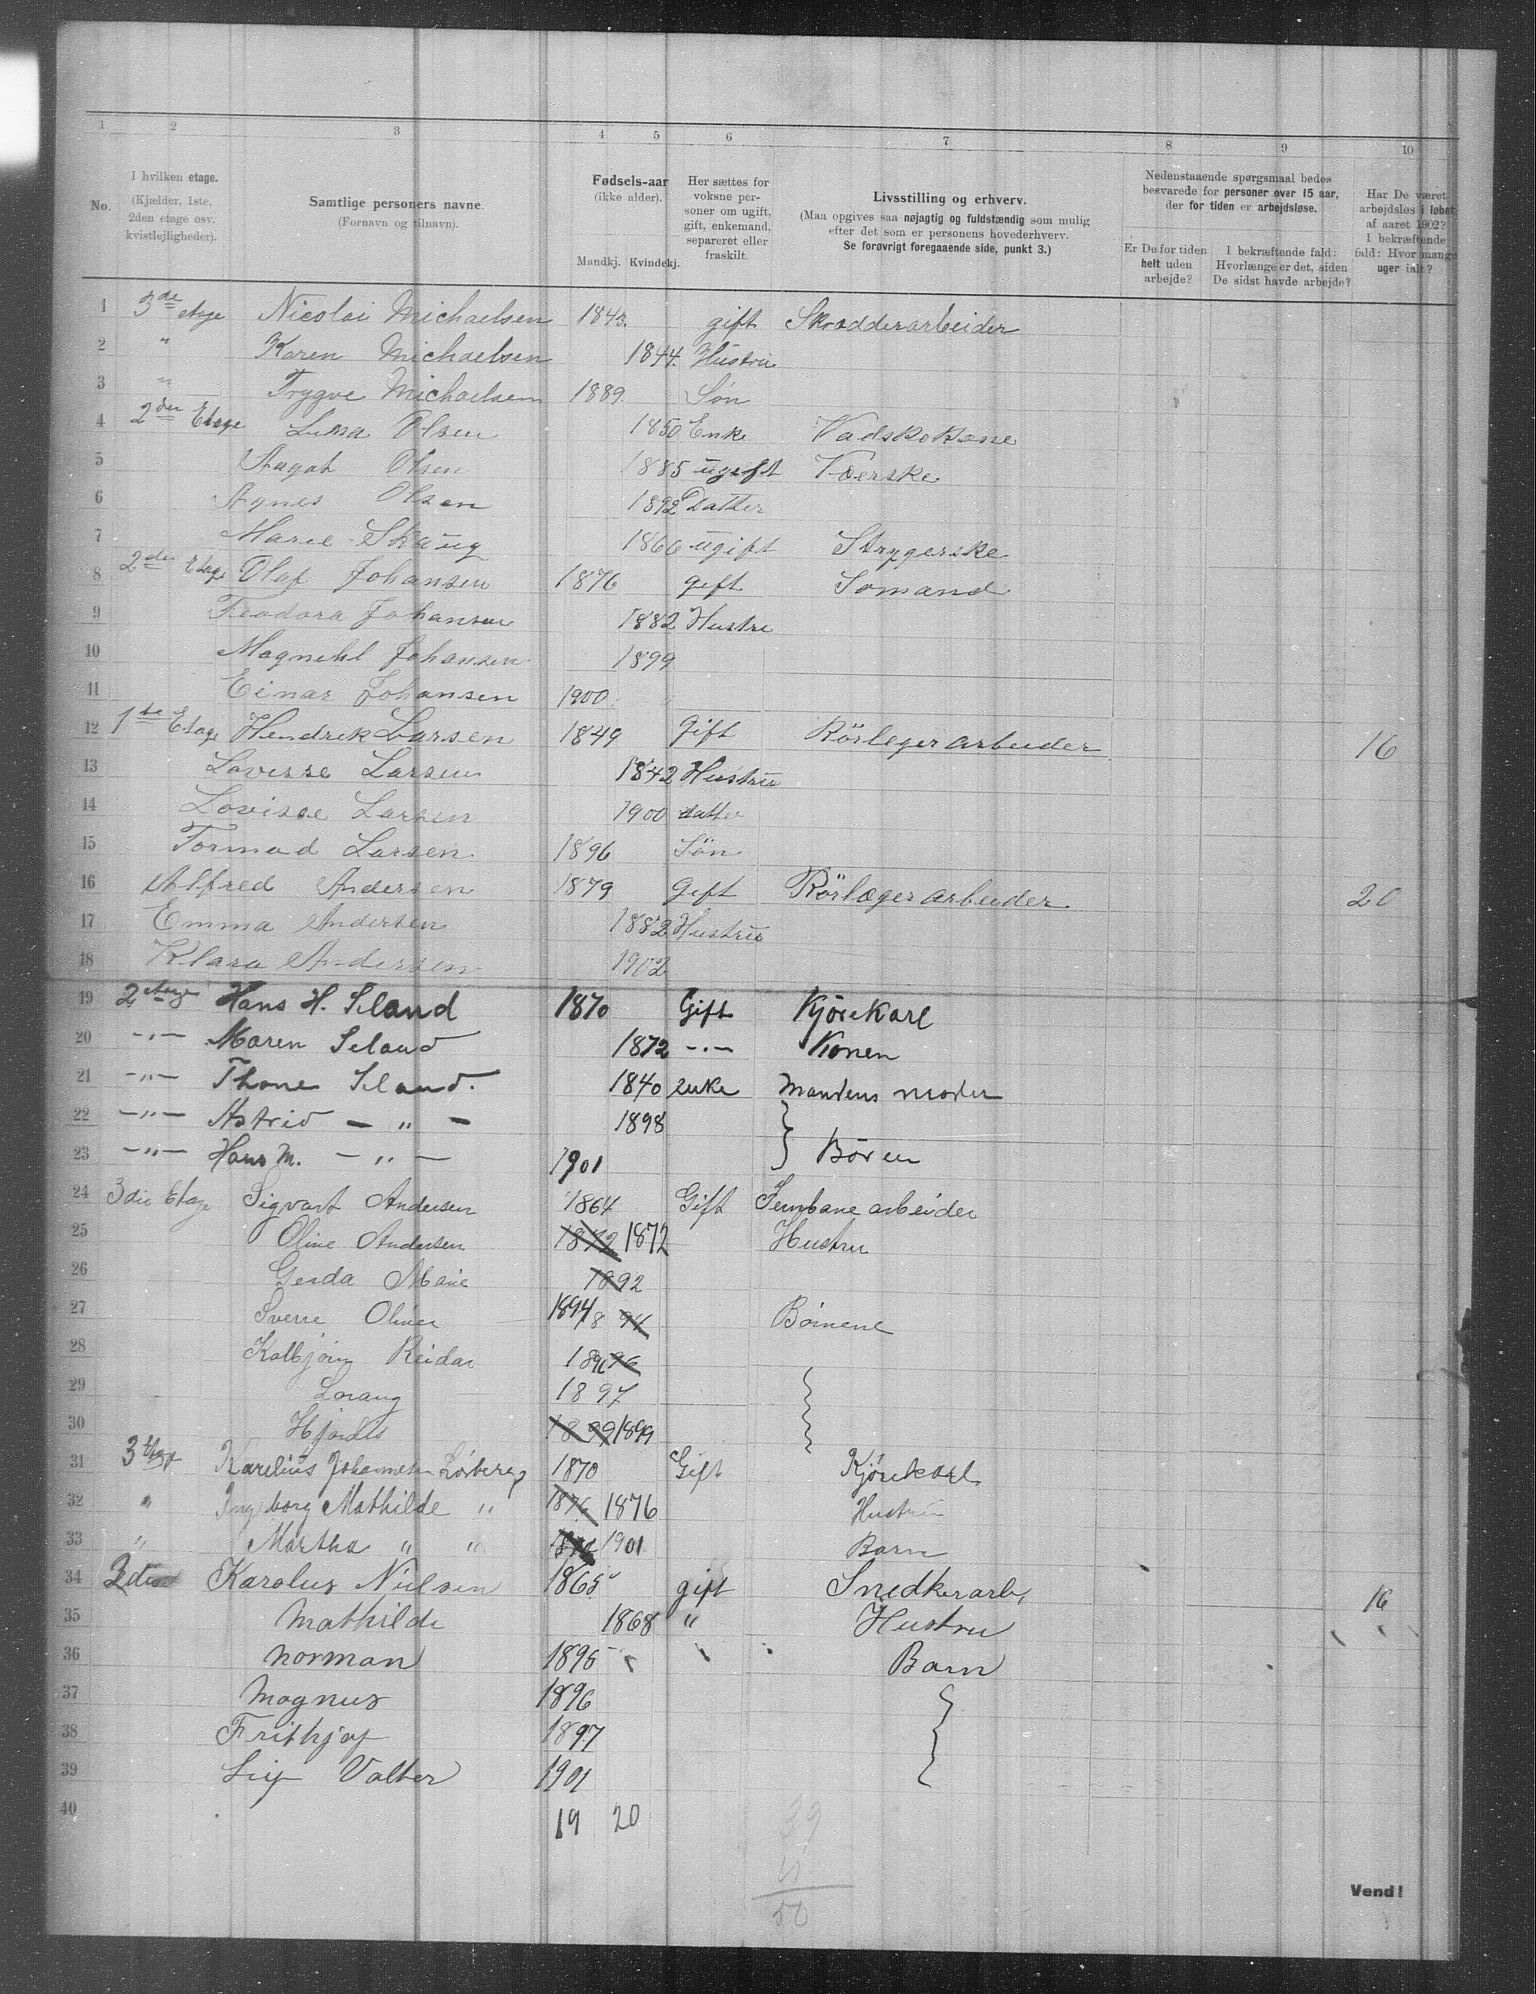 1 2 3 4 5 6 7 8 9 10
No.
I hvilken etage.
(Kjælder, 1ste,
2den etage osv.
kvistlejligheder).
Samtlige personers navne.
(Fornavn og tilnavn).
Fødsels-aar
(ikke alder).
Mandkj. Kvindekj.
Her sættes for
voksne per-
soner om ugift,
gift, enkemand,
separeret eller
fraskilt.
Livsstilling og erhverv.
(Maa opgives saa nøjagtig og fuldstændig som mulig
efter det som er personens hovederhverv.
Se forøvrigt foregaaende side, punkt 3.)
Nedenstaaende spørgsmaal bedes
besvarede for personer over 15 aar,
der for tiden er arbejdsløse.
Er De for tiden
helt uden
arbejde?
I bekræftende fald:
Hvorlænge er det, siden
De sidst havde arbejde?
Har De været
arbejdsløs i løbet
af aaret 1902?
I bekræftende
fald: Hvor mange
uger ialt?
1 3de etage Nicolai Michaelsen 1843. gift Skrædderarbeider
2 " Karen Michaelsen 1844. Hustru
3 " Trygve Michaelsen 1889 Søn
4 2den Etage Olsen 1850 Enke Vadskekone
5 Aagat Olsen 1885 ugift Væerske
6 Agnes Olsen 1892 Datter
7 Marie Skaug 1866 ugift Strygerske
8 2den Etage Olaf Johansen 1876 gift Sømand
9 Teodora Johansen 1882 Hustru
10 Magnehl Johansen 1899
11 Einar Johansen 1900
12 1ste Etage Hendrik Larsen 1849 Gift Rörlegerarbeider 16
13 Lovisse Larsen 1842 Hustru
14 Lovisae Larsen 1900 datter
15 Tormod Larsen 1896 Sön
16 Alfred Andersen 1879 Gift Rörlægerarbeider 20
17 Emma Andersen 1882 Hustru
18 Klara Andersen 1902
19 2 etage Hans H. Seland 1870 Gift Kjørekarl
20 -"- Maren Seland 1872 -"- Konen
21 -"- Thone Seland. 1840 enke Mandens moder
22 -"- Astrid - " - 1898
23 -"- Hans M. - " - 1901 } Børen
24 3die Etage Sigvart Andersen 1864 Gift Jernbanearbeider
25 Oline Andersen 1872 1872 Hustru
26 Gerda Marie 1892
27 Sverre Oliver 1894 1894 Børnene
28 Kolbjørn Reidar 1896 96
29 Lorang 1897
30 Hjørdis 1899 1899
31 3 Etage Karelius Johannesen Lørberg 1870 Gift Kjørekarl
32 " Ingeborg Mathilde " 1876 1876 Hustru
33 " Martha " " 1901 Barn
34 3die Karolus Nielsen 1865 gift Snedkerarb, 16
35 Mathilde 1868 " Hustru
36 Norman 1895 Barn
37 Magnus 1896
38 Frithjof 1897
39 Valter 1901
40 19 20
39
11
50
Vend!